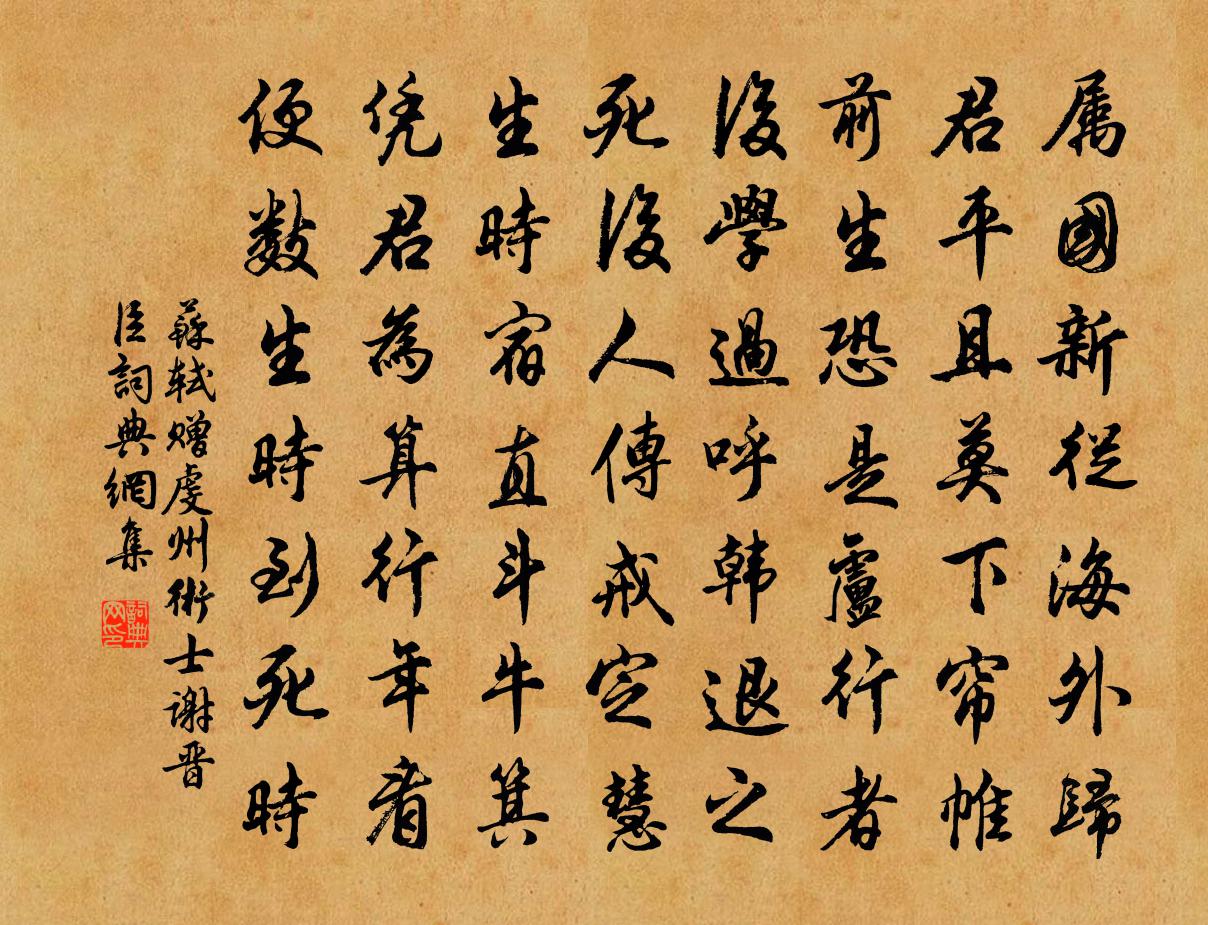 属國新從海外歸
君平且莫下帘帷
前生恐是盧行者
後學過呼韩退之
死後人傳戒定慧
生時宿直斗牛箕
凭君為算行年看
便數生時到死時
蘇轼赠虔州術士謝晋
臣詞典網集
詞典网印